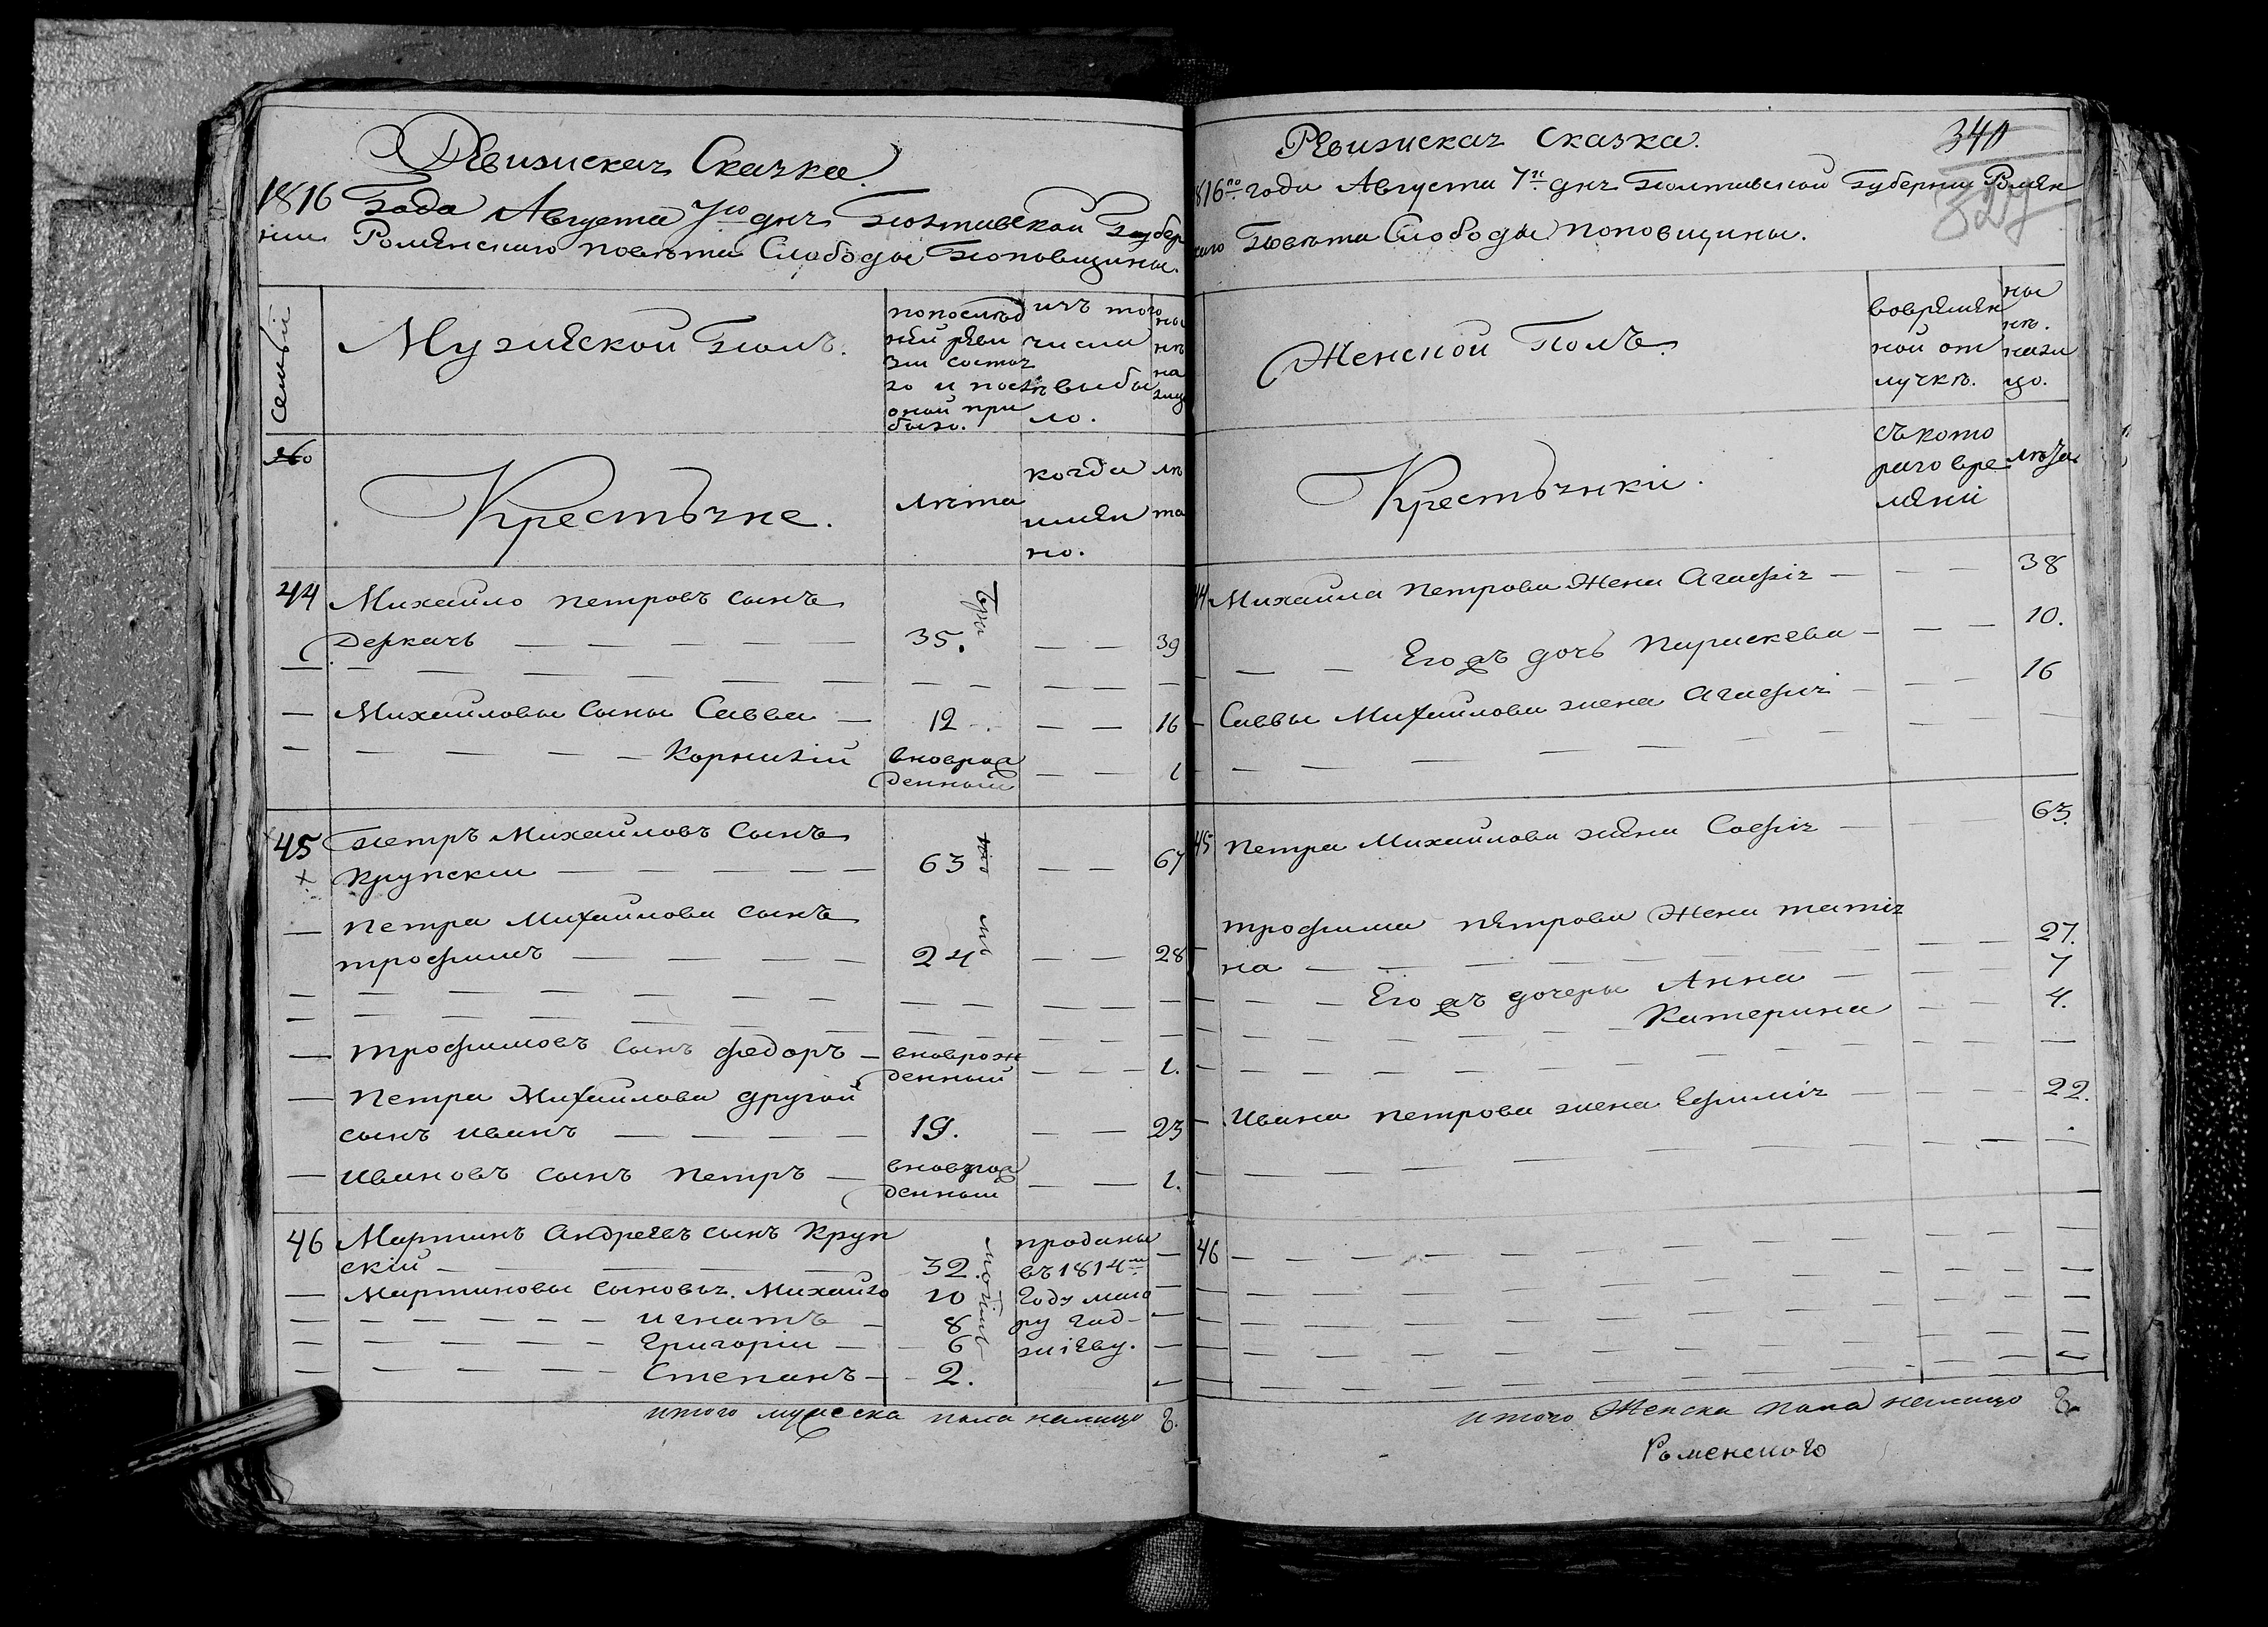 Ревижская Сказка.
1816 Года Августа 7го дня Полтавской Губер
нии Роменскаго повѣта Слободы Поповщины.
семьи
Мужескои Полъ.
попослѣд
ней реви
зіи состоя
ло и послѣ
оной при
было.
изъ того
числа
выбы
ло.
ны
нѣ
на
лицо
№
Крестьяне.
лѣта
когда
имян
но.
лѣ
та
44 Михайло петровъ сынъ
Деркачь 35. 39
Михайловы сыны Савва 12 16
Корнилій вноврож
денный 1
45 Петръ Михайловъ Сынъ
Крупскии 63 67
Петра Михайлова сынъ
трофимъ 24 28
трофимовъ сынъ федоръ вноврож
денный 1.
Петра Михайлова другой
сынъ иванъ 19. 23
ивановъ сынъ петръ вноврож
денныи 1.
46 Мартинъ Андреевъ сынъ Круп
скій 32.
Мартиновы сыновья. Михайло 10
игнатъ 8
Григоріи 6
Степанъ 2.
проданы
въ 1814м
Году маио
ру Гад
зиеву.
итого мужеска пола налицо 8.
Ревижская Сказка.
340
327
816го года Августа 7го дня Полтавской Губернии Ромен
каго Повѣта Слободы Поповщины.
Женской Полъ.
вовремян
ной от
лучкѣ.
ны
нѣ.
нали
цо.
Крестьянки.
съ кото
раго вре
мени
лѣта
44 Михаила петрова Жена Агафія 38
Его жъ дочь Параскева 10.
Саввы Михайлова жена Агафія 16
45 Петра Михайлова жена Софія 63.
трофима петрова Жена татія
на 27.
Его жъ дочеры Анна 7
Катерина 4.
Ивана петрова жена Ефимія 22.
46
итого Женска пола налицо 8.
Роменского